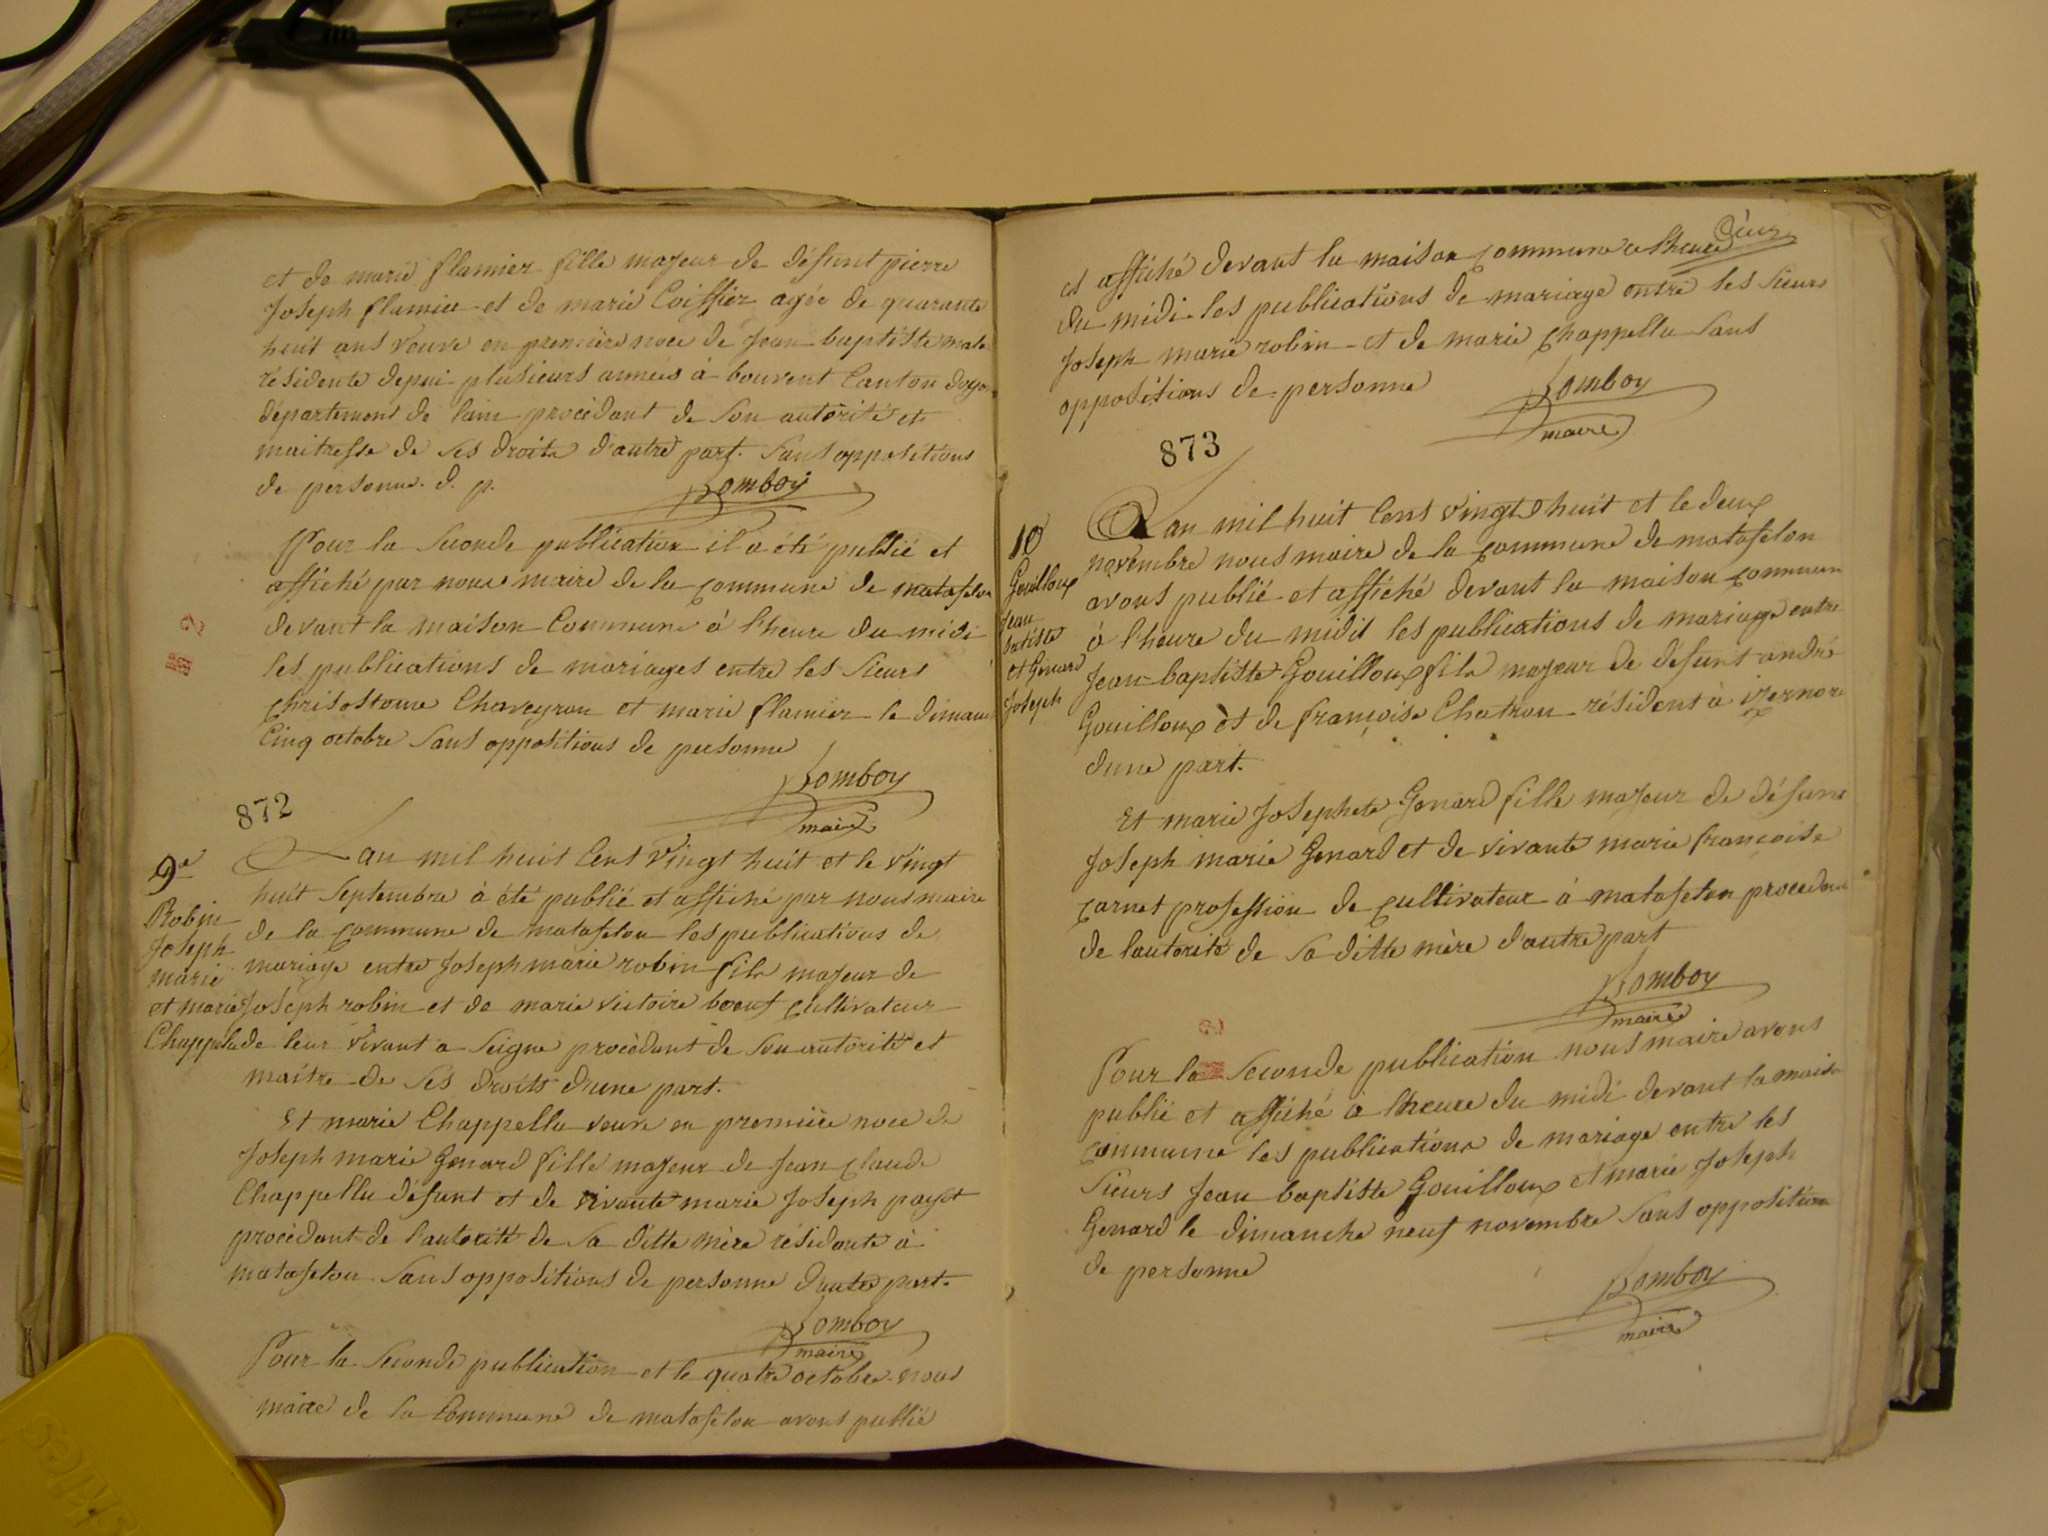 et de marie flamier fille majeur de défunt pierre
Joseph flamier et de marie Coiffier agée de quarante
huit ans veuve en première noce de Jean baptiste mate
résidente depui plusieurs années à bouvent Canton doyon
département de lain procédant de son autorité et
maitresse de ses droits d'autre part. Sans oppositions
de personne. d. p.
Pomboy
Pour la Seconde publication il a été publié et
affiché par nous maire de la commune de matafelon
devant la maison Commune à l'heure du midi
les publications de mariages entre les Sieurs
chrisostome Chaveyron et marie flamier le dimanc
Cinq octobre Sans oppositions de personne
Pomboy
maire
872
9e
Robin
Joseph
marie
et marie
Chappelu
Lan mil huit Cent Vingt huit et le Vingt
huit Septembre à été publié et affiché par nous maire
de la commune de matafelon les publications de
mariage entre Joseph marie robin fils majeur de
Joseph robin et de marie victoire boeuf cultivateur
de leur vivant a Seigne procèdant de Son autorité et
maitre de Sés droits dune part.
Et marie Chappellu veuve en première noce de
Joseph marie Genard fille majeur de Jean Claude
Chappellu défunt et de vivante marie Joseph payet
procédant de l'autorité de Sa ditte mère résidente à
matafelon Sans oppositions de personne dautre part.
Pomboy
maire
Pour la Seconde publication et le quatre octobre nous
maire de la Commune de matafelon avons publié
et affiché devant la maison commune a l'heure
du midi les publications de mariage entre les Sieurs
Joseph marie robin et de marie Chappellu Sans
oppositions de personne
Pomboy
maire
873
10
Gouilloux
Jean
batiste
et Genard
Joseph
Lan mil huit Cent Vingt huit et le deux
novembre nous maire de la commune de matafelon
avons publié et affiché devant la maison commun
à l'heure du midit les publications de mariage entre
Jean-baptiste Gouilloux fils majeur de defunt andré
Gouilloux et de françoise Chatron résident à izernore
dune part.
Et marie Josephete Genard fille majeur de défunt
Joseph marie Genard et de vivante marie françoise
carnet profession de cultivateur à matafelon procedant
de lautorité de Sa ditte mère d'autre part
Pomboy
maire
Pour la Seconde publication nous maire avons
publié et affiché à l'heure du midi devant la maison
commune les publications de mariage entre les
Sieurs Jean baptiste Gouilloux et marie Joseph
Genard le dimanche neuf novembre Sans opposition
de personne
Pomboy
maire